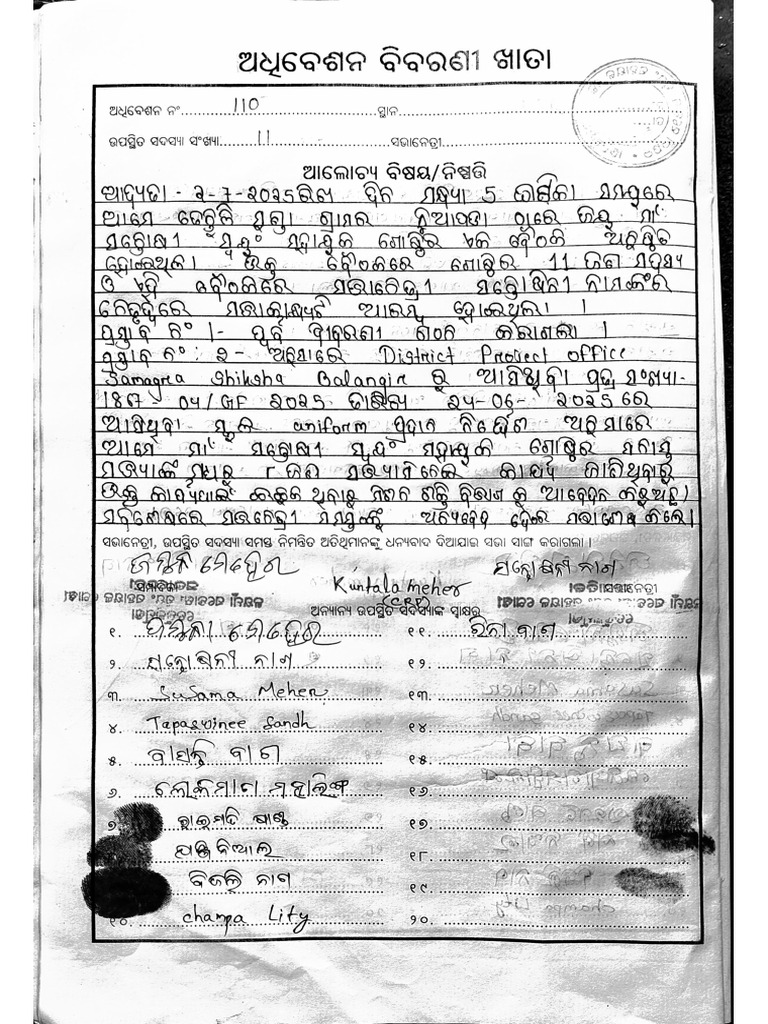 ଅଧିବେଶନ ବିବରଣୀ ଖାତା
ଅଧିବେଶନ ନଂ 110 ସ୍ଥାନ
ଉପସ୍ଥିତ ସଦସ୍ୟା ସଂଖ୍ୟା 11 ସଭାନେତ୍ରୀ
ଆଲୋଚ୍ୟ ବିଷୟ/ନିଷ୍ପତ୍ତି
ଆଦ୍ୟତା - ୨-7-୨୦୨5ରିଖ ଦିନ ସନ୍ଧ୍ୟା 5 ଘଟିକା ସମୟରେ
ଆମେ ଗ୍ରାମର ନୂଆପଡା ଠାରେ ଜୟ ମାଁ
ସନ୍ତୋଷୀ ସ୍ୱୟଂ ସହାୟକ ଗୋଷ୍ଠିର ଏକ ବୈଠକ ଅନୁଷ୍ଠିତ
ହୋଇଥିଲା । ଉକ୍ତ ବୈଠକରେ ଗୋଷ୍ଠିର 11 ଜଣ ସଦସ୍ୟ
ଓ ଏହି ବୈଠକରେ ସଭାନେତ୍ରୀ ସନ୍ତୋଷିନୀ ନାଗଙ୍କର
ନେତୃତ୍ୱରେ ସଭାକାର୍ଯ୍ୟଟି ଆରମ୍ଭ ହୋଇଥିଲା ।
ପ୍ରସ୍ତାବ ନଂ 1- ପୂର୍ବ ବିବରଣୀ ପଠନ କରାଗଲା ।
ପ୍ରସ୍ତାବ ନଂ: ୨ - ଅନୁସାରେ District Project office
Samagra Shiksha Balangir ରୁ ଆସିଥିବା ପତ୍ର ସଂଖ୍ୟା-
04/GF ୨୦୨5 ତାରିଖ ୨4-06- ୨୦୨5ରେ
ଆସିଥିବା ସ୍କୁଲ uniform ପ୍ରଦାନ ନିର୍ଦ୍ଦେଶ ଅନୁସାରେ
ଆମେ ମାଁ ସନ୍ତୋଷୀ ସ୍ୱୟଂ ସହାୟକ ଗୋଷ୍ଠିର ସମସ୍ତ
ସଭ୍ୟାଙ୍କ ମଧ୍ୟରୁ ୮ ଜଣ ସଭ୍ୟା ସିଲେଇ କାର୍ଯ୍ୟ ଜାଣିଥିବାରୁ
ଉକ୍ତ କାର୍ଯ୍ୟପାଇଁ ଇଚ୍ଛୁକ ଥିବାରୁ ମିଶନ ଶକ୍ତି ବିଭାଗ କୁ ଆବେଦନ କରୁଅଛୁ ।
ସର୍ବଶେଷରେ ସଭାନେତ୍ରୀ ସମସ୍ତଙ୍କୁ ଧନ୍ୟବାଦ ଦେଇ ସଭା ଶେଷ କଲେ ।
ସଭାନେତ୍ରୀ, ଉପସ୍ଥିତ ସଦସ୍ୟା ସମସ୍ତ ନିମନ୍ତିତ ଅତିଥିମାନଙ୍କୁ ଧନ୍ୟବାଦ ଦିଆଯାଇ ସଭା ସାଙ୍ଗ କରାଗଲା ।
ମେହେର Kuntala meher ସନ୍ତୋଷିନୀ ନାଗ
ସମ୍ପାଦିକା (CRP) ସଭାନେତ୍ରୀ
ଅନ୍ୟାନ୍ୟ ଉପସ୍ଥିତ ସଦସ୍ୟାଙ୍କ ସ୍ୱାକ୍ଷର
୧. ମେହେର ୧୧. ରିନା ବାଗ
୨. ସନ୍ତୋଷିନୀ ନାଗ ୧୨.
୩. Susama Meher ୧୩.
୪. Tapaswinee Sandh ୧୪.
୫. ବାସନ୍ତି ବାଗ ୧୫.
୬. ଲୋକମାଗ ମହାଲିଙ୍ଗ ୧୬.
୭ ରାଇମତି ଷାଣ୍ଢ ୧୭.
ବିଆଲ ୧୮.
ବିଜଲି ନାଗ ୧୯.
୧୦. champa Lity ୨୦.